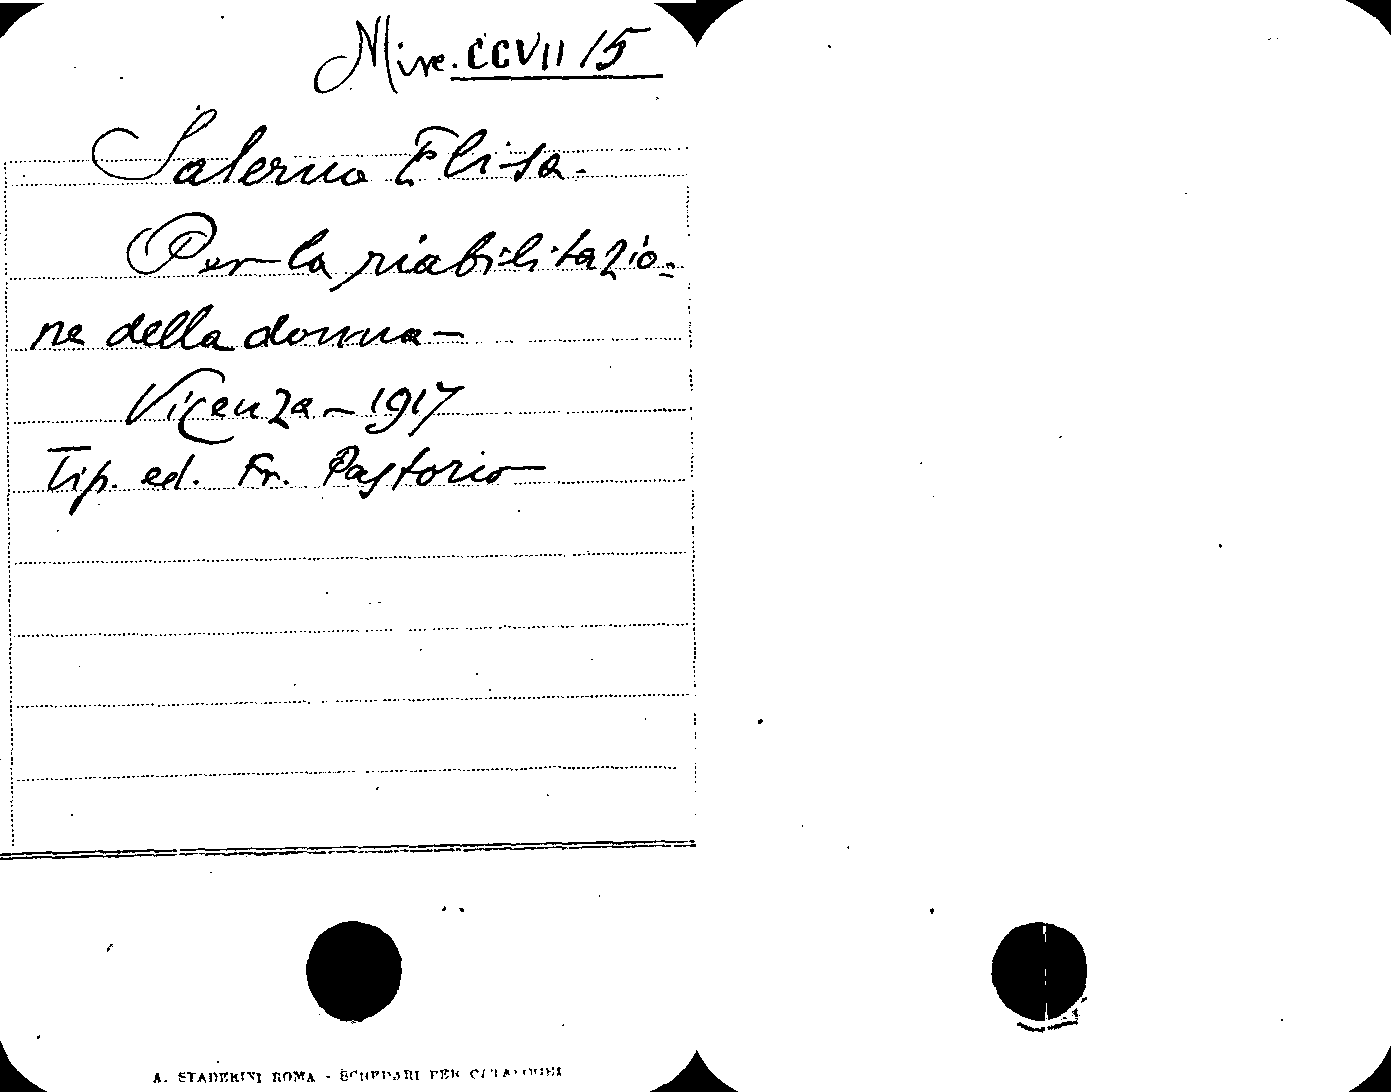 Misc. CCVII 15
Salerno Elisa.
Per la riabilitazio=
ne della donna—
Vicenza — 1917
Tip. ed. Fr. Pastorio—
A. STADERINI ROMA - SCHEDARI PER CATALOGHI